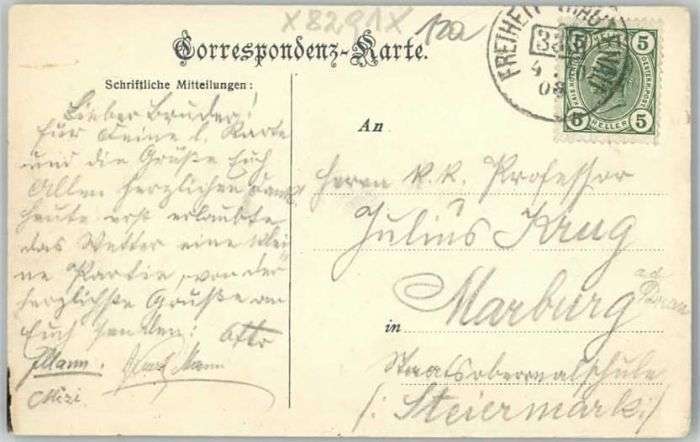 X8291X
120
Correspondenz-Karte.
FREIHEIT
5 5
5 HELLER 5
Schriftliche Mitteilungen:
Lieber Bruder!
Für Deine l. Karte
und die Grüße Euch
Allen herzlichen Dank
heute erst erlaubte
das Wetter eine klei
ne Partie, von der
herzlichste Grüße an
Euch senden: Otto
Mann. Mann
Mizi.
An
Herrn K. K. Professor
Julius Krug
Marburg a. d. Drau
in
Staatsoberrealschule
/: Steiermark :/